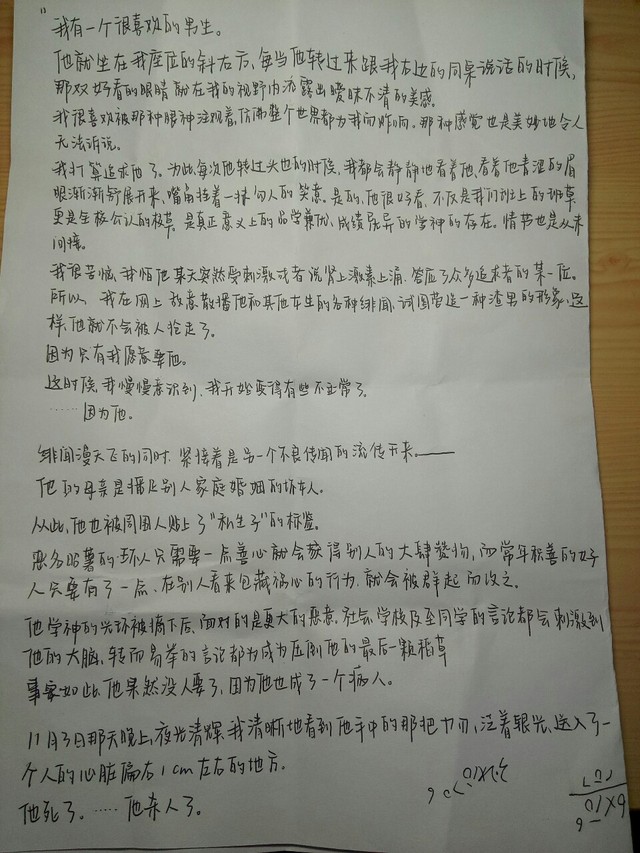 我有一个很喜欢的男生。
他就坐在我座位的斜右后,每当他转过来跟我右边的同桌说话的时候,
那双好看的眼睛就在我的视野内流露出暧昧不清的美感。
我很喜欢被那种眼神注视着,仿佛整个世界都为我而炸响。那种感觉也是美妙地令人
无法诉说。
我打算追求他了。为此,每次他转过头也的时候,我都会静静地看着他,看着他青涩的眉
眼渐渐舒展开来,嘴角挂着一抹勾人的笑意。是的,他很好看,不仅是我们班上的班草,
更是全校公认的校草。是真正意义上的品学兼优、成绩优异的学神的存在。情书也是从未
间接。
我很苦恼,我怕他某天突然受刺激或者说肾上激素上涌,答应了众多追求者的某一位。
所以,我在网上故意散播他和其他女生的各种绯闻,试图营造一种渣男的形象,这
样,他就不会被人抢走了。
因为只有我愿意要他。
这时候,我慢慢意识到,我开始变得有些不正常了。
……因为他。
绯闻漫天飞的同时,紧接着是另一个不良传闻的流传开来。——
他的母亲是插足别人家庭婚姻的坏女人。
从此,他也被周围人贴上了"私生子"的标签。
恶名昭著的坏人只需要一点善心就会获得别人的大肆赞扬,而常年积善的好
人只要有了一点、在别人看来包藏祸心的行为,就会被群起而攻之。
他学神的光环被摘下后,面对的是更大的恶意,社会、学校及至同学的言论都会刺激到
他的大脑,转而易举的言论都为成为压倒他的最后一颗稻草
事实如此,他果然没人要了,因为他也成了一个病人。
11月3日那天晚上,夜光清辉,我清晰地看到他手中的那把刀刃,泛着银光,送入了一
个人的心脏偏右1cm左右的地方。
他死了。……他杀人了。